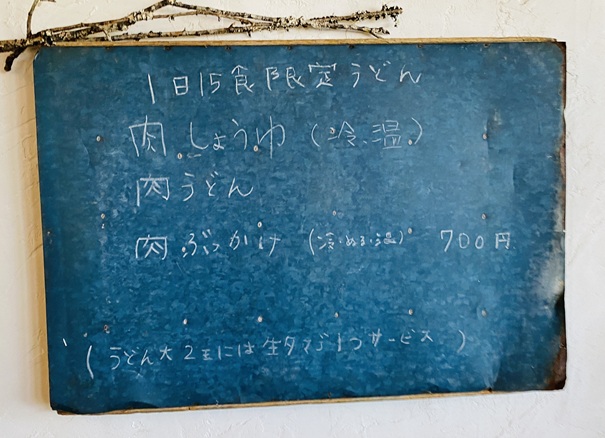 1日15食限定うどん
肉しょうゆ(冷、温)
肉うどん
肉ぶっかけ (冷・ぬる・温) 700円
(うどん大2玉には生タマゴ1つサービス)